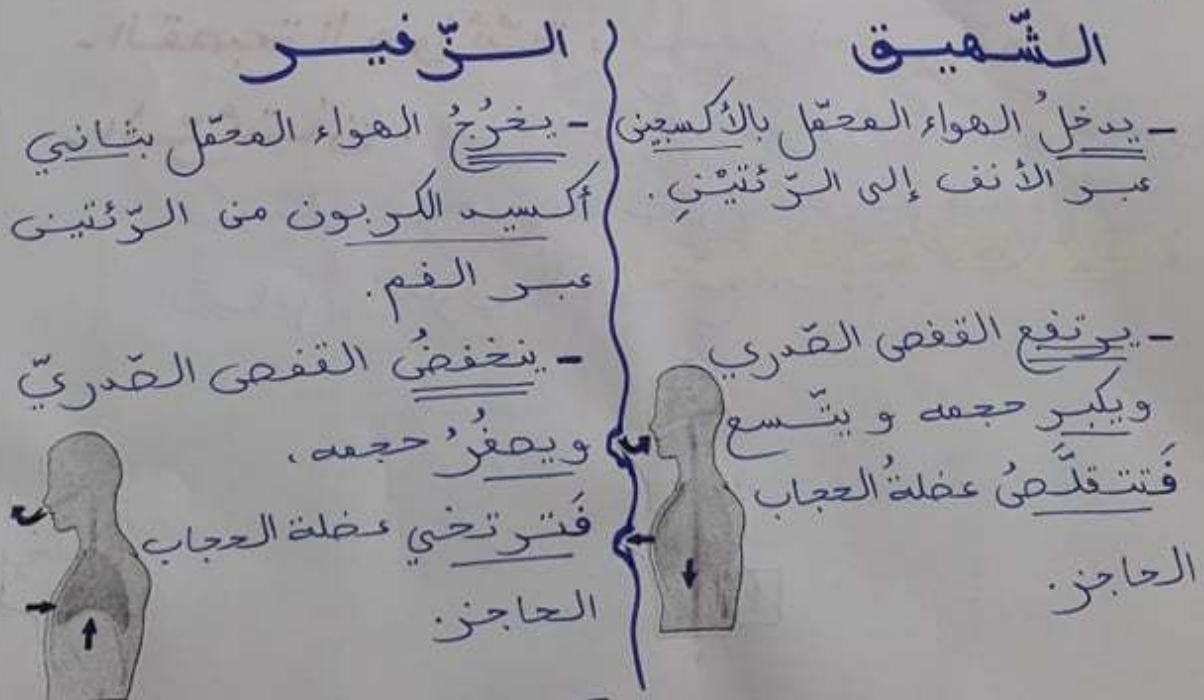 الشّهيق
- يدخلُ الهواء المحمّل بالأكسجين
عبر الأنف إلى الرّئتيْنِ.
- يرتفع القفص الصّدري
ويكبر حجمه و يتّسع
فَتتقلَّصُ عضلةُ الحجاب
الحاجز.
الزّفير
- يخرُجُ الهواء المحمّل بثاني
أكسيد الكربون من الرّئتين
عبر الفم.
- ينخفضُ القفص الصّدريّ
ويصغُرُ حجمه،
فَترتخي عضلة الحجاب
الحاجز.